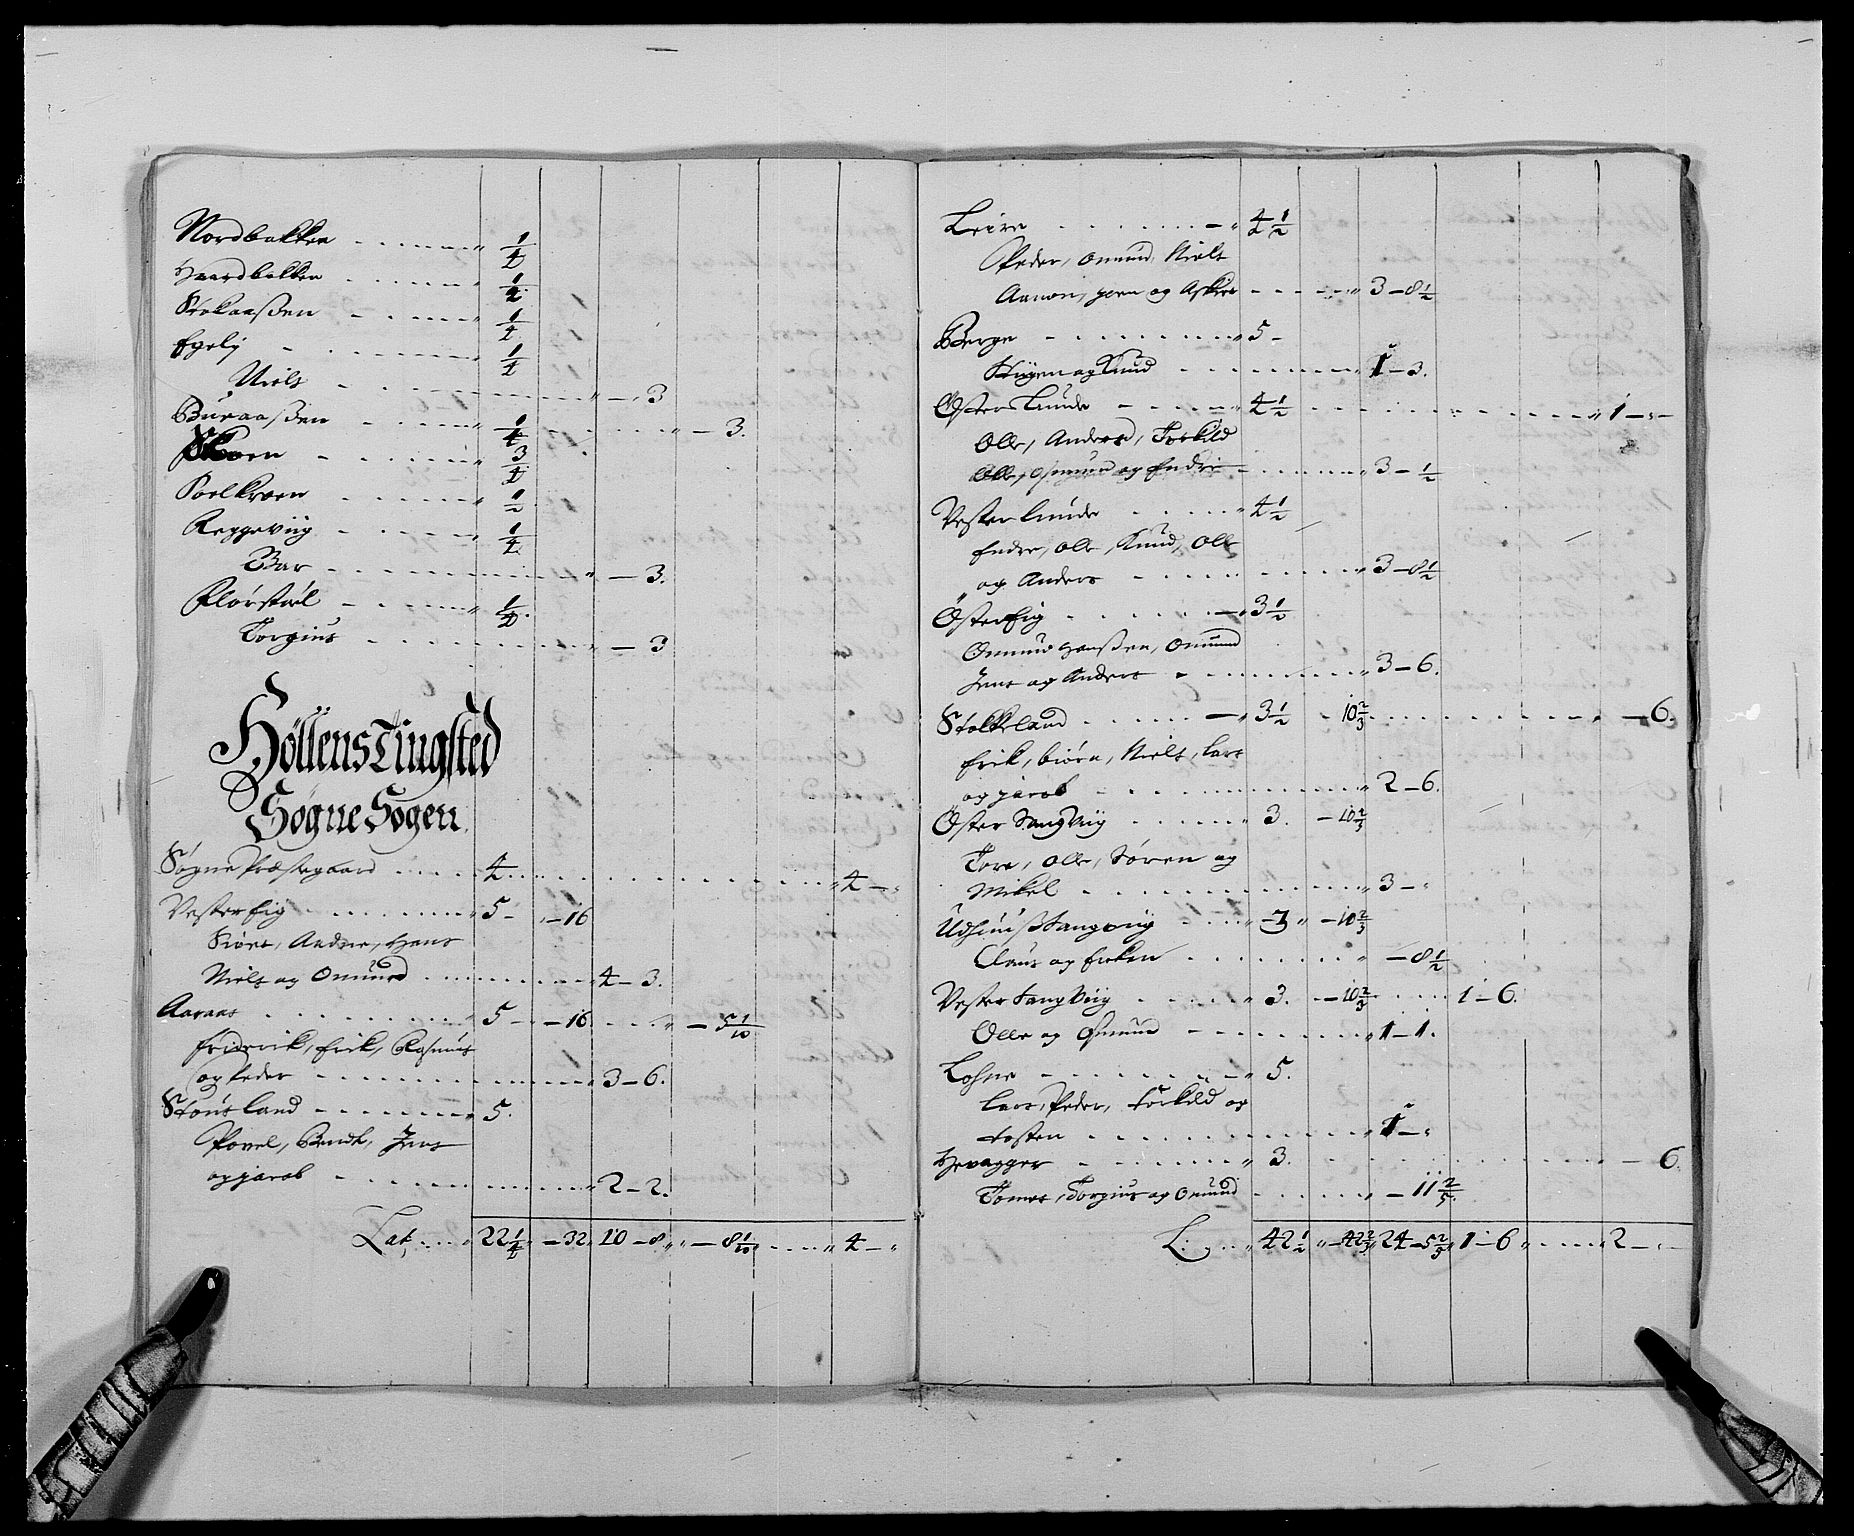 Nordbakken 1/4
Haardbakken 1/4
Stokaaßen 1/4
Egely 1/4
Niels — 3
Buraaßen 1/4 — 3.
Skoen 3/4
Koelkroen 1/2
Reggeviig 1/4
Bar — 3.
Florstøel 1/4
Torgius — 3
Höllens Tingsted
Søgne Sogen
Søgne Præstegaard 4 4 —
Vester Eig 5 — 16
Siøre, Andree, Hans
Niels og Omund 4 — 3.
Aaraas 5 — 16 — 5 1/10
Friderik, Erik, Rasmus
og Peder 3 — 6.
Stousland 5.
Povel, Bendt, Jens
og Jacob 2 — 2.
Lat 22 1/4 — 32 10 — 8 — 8 1/10 4 —
Leire 4 1/2
Peder, Omund, Niels
Aanon, og Asker 3 — 8 1/2
Berge 5 —
og Knud 1 — 3.
Øster Lunde 4 1/2 1 —
Olle, Anders, Torkild
Olle, Osmund og Endre 3 — 1/2
Vester Lunde 4 1/2
Endre, Olle, Knud, Olle
og Anders 3 — 8 1/2
Øster Eig 3 1/2
Omund Hanßen, Omund
Jens og Anders 3 — 6.
Stokkeland 3 1/2 — 10 2/3 — 6.
Erik, Biørn, Niels, Lars
og Jacob 2 — 6.
Øster Tangviig 3. — 10 2/3
Tore, Olle, Søren og
Mikel 3 —
Udhuuß Tangviig 3 — 10 2/3
Claus og — 8 1/2
Vester Tangviig 3. — 10 2/3 1 — 6.
Olle og Osmund 1 — 1.
Lohne 5.
Lars, Peder, Torkild og
Tosten 1 —
Hevagger 3. — 6.
Tomes, Torgius og Omund — 11 2/5.
L. 42 1/2 — 42 2/3 24 — 5 2/3 1 — 6 2 —